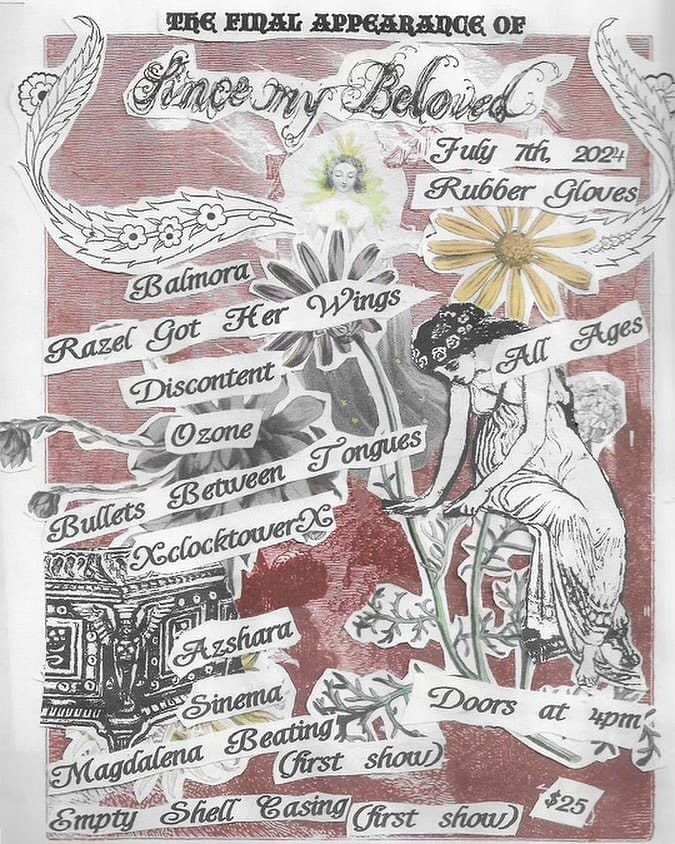 THE FINAL APPEARANCE OF
Since my Beloved
July 7th, 2024
Rubber Gloves
Balmora
Razel Got Her Wings
All Ages
Discontent
Ozone
Bullets Between Tongues
XclocktowerX
Azshara
Sinema
Doors at 4pm
Magdalena Beating
(first show)
Empty Shell Casing (first show)
$25